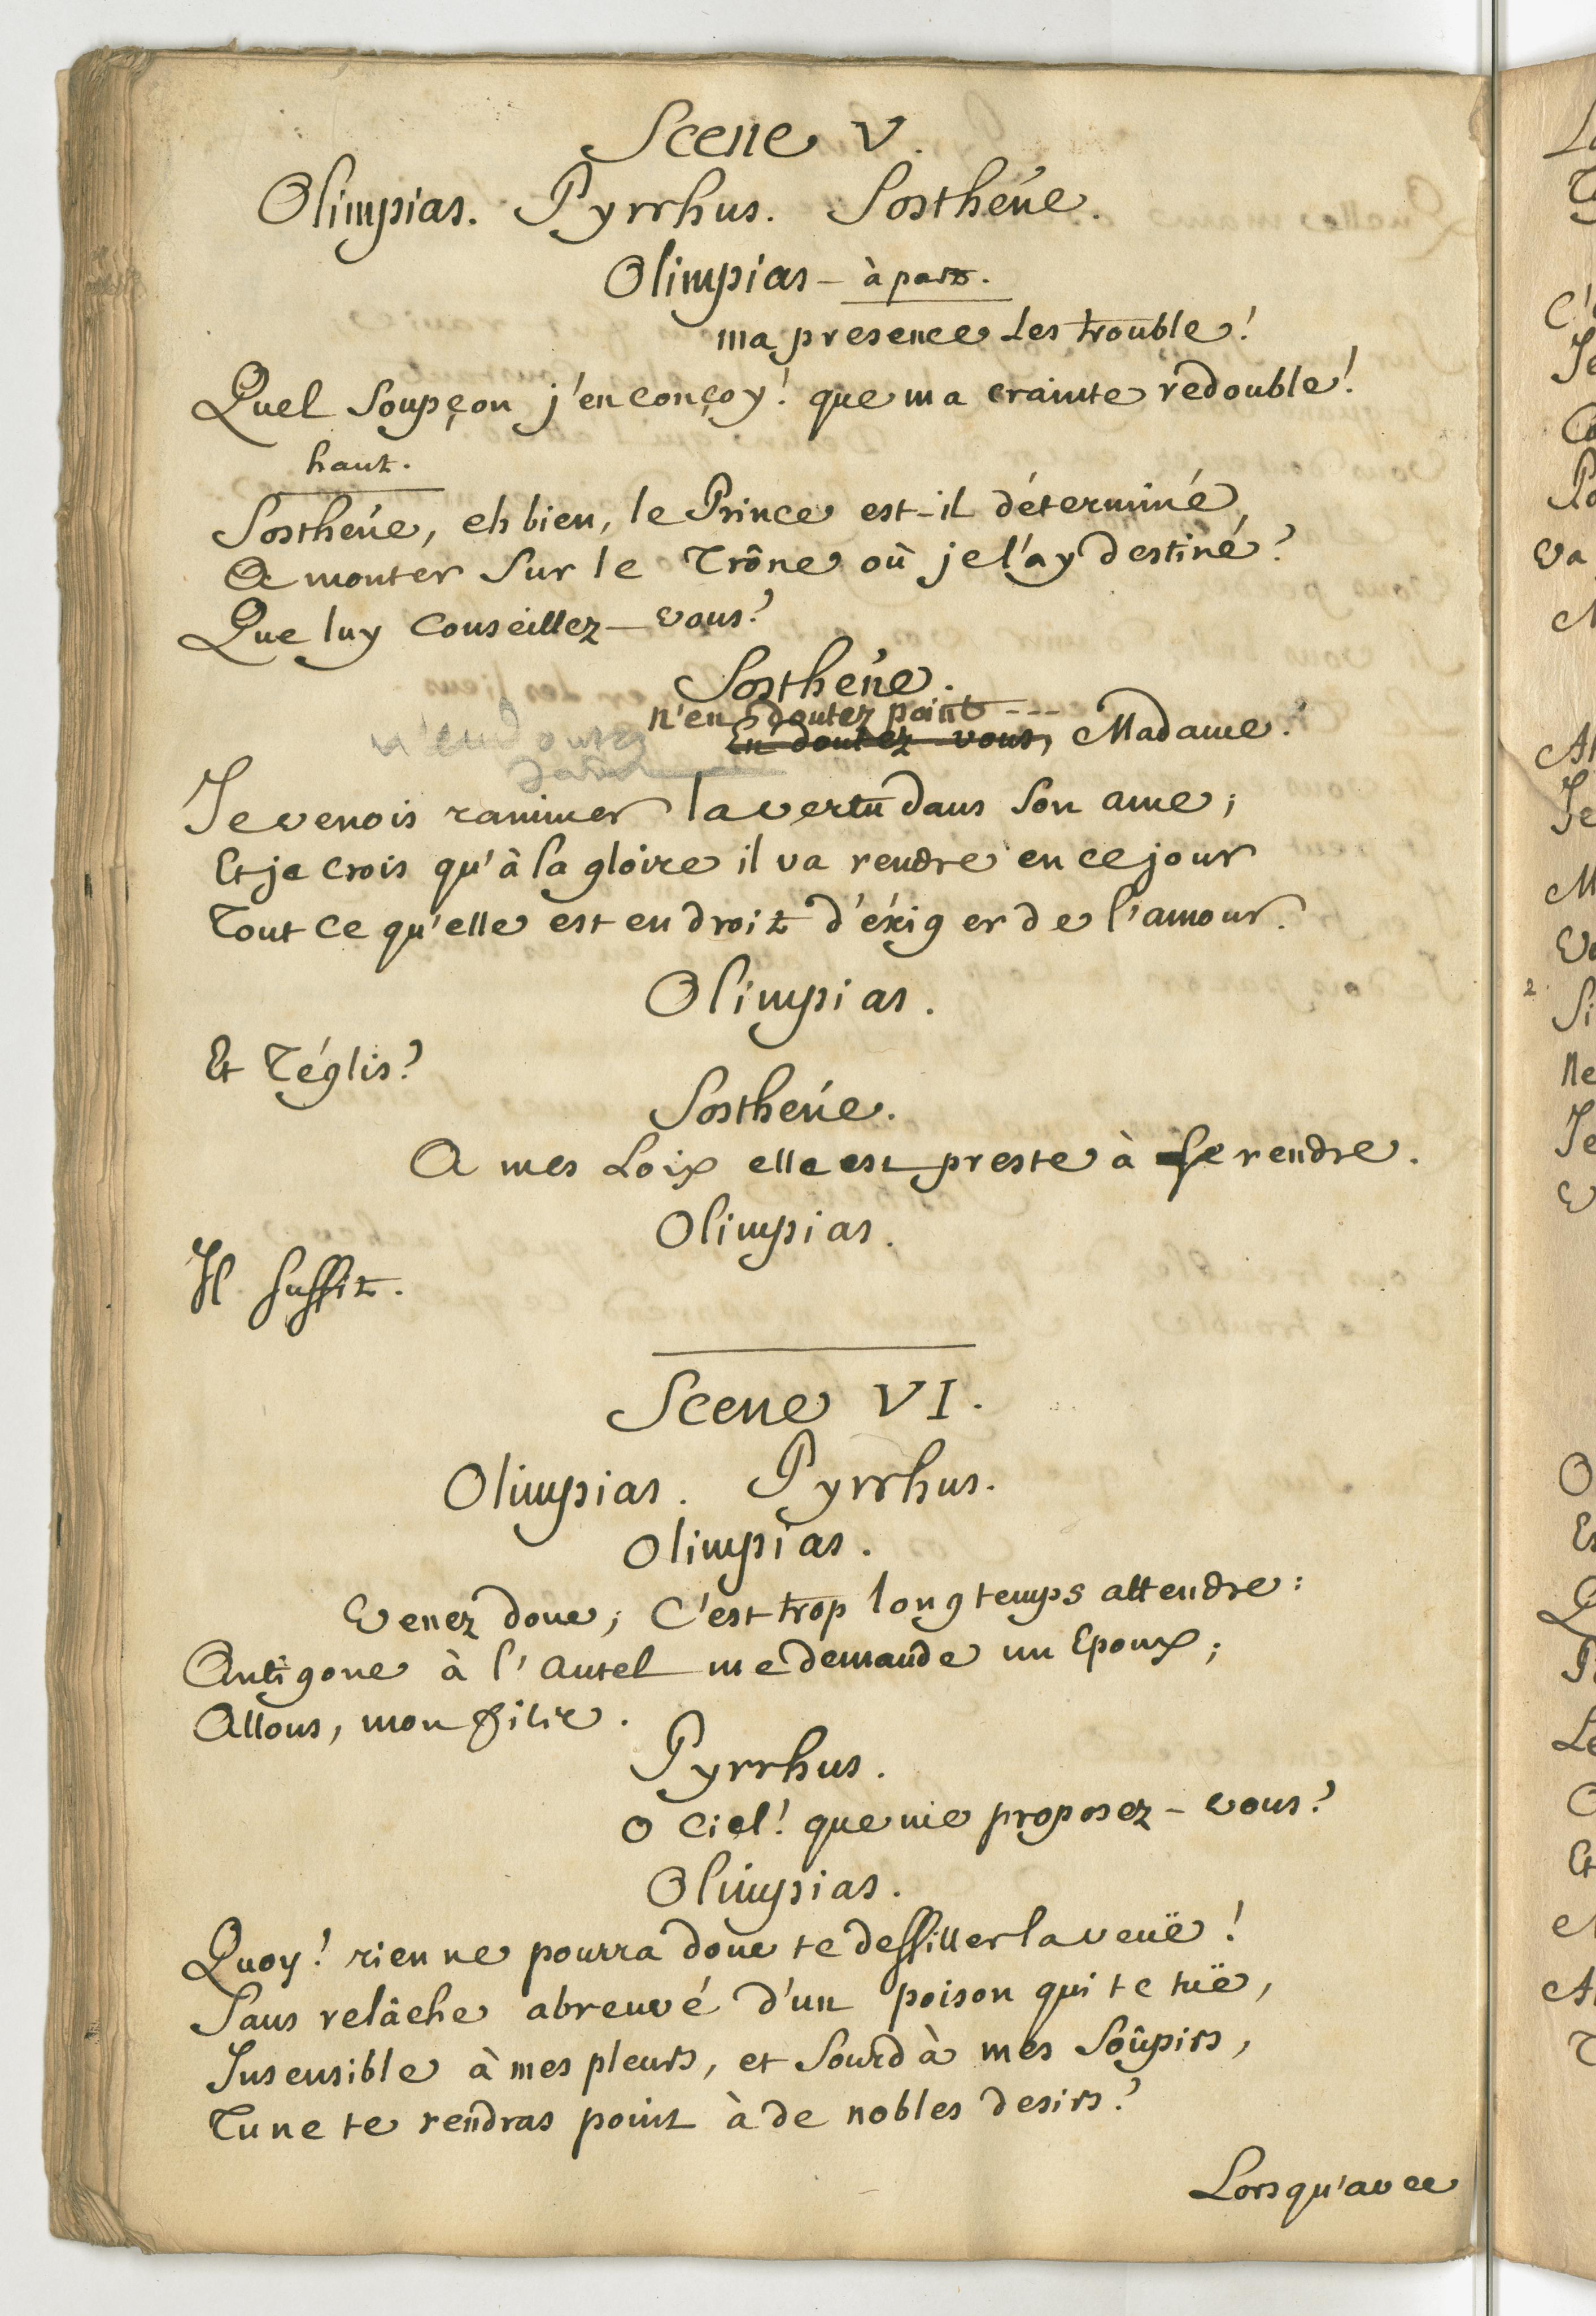 Scene V.
Olimpias. Pyrrhus. Sosthéne.
Olimpias - à part.
ma presence les trouble!
Quel soupçon j'en conçoy! que ma crainte redouble!
haut.
Sosthéne, eh bien, le Prince est-il déterminé,
A monter sur le Trône où je l'ay destiné?
Que luy conseillez-vous?
Sosthéne.
n'en doutez point ---
n'en doutez
En doutez-vous, Madame?
Je venois ranimer la vertu dans son ame;
Et je crois qu'à la gloire il va rendre en ce jour
Tout ce qu'elle est en droit d'éxiger de l'amour.
Olimpias.
Et Téglis?
Sosthéne.
A mes Loix elle est preste à se rendre.
Olimpias.
Il suffit.
Scene VI.
Olimpias. Pyrrhus.
Olimpias.
Venez donc; C'est trop longtemps attendre:
Antigone à l'Autel me demande un Epoux;
Allons, mon filz.
Pyrrhus.
O Ciel! que me proposez-vous?
Olimpias.
Quoy! rien ne pourra donc te dessiller la veuë!
Sans relâche abreuvé d'un poison qui te tuë,
Insensible à mes pleurs, et sourd à mes soûpirs,
Tu ne te rendras point à de nobles desirs?
Lorsqu'avec